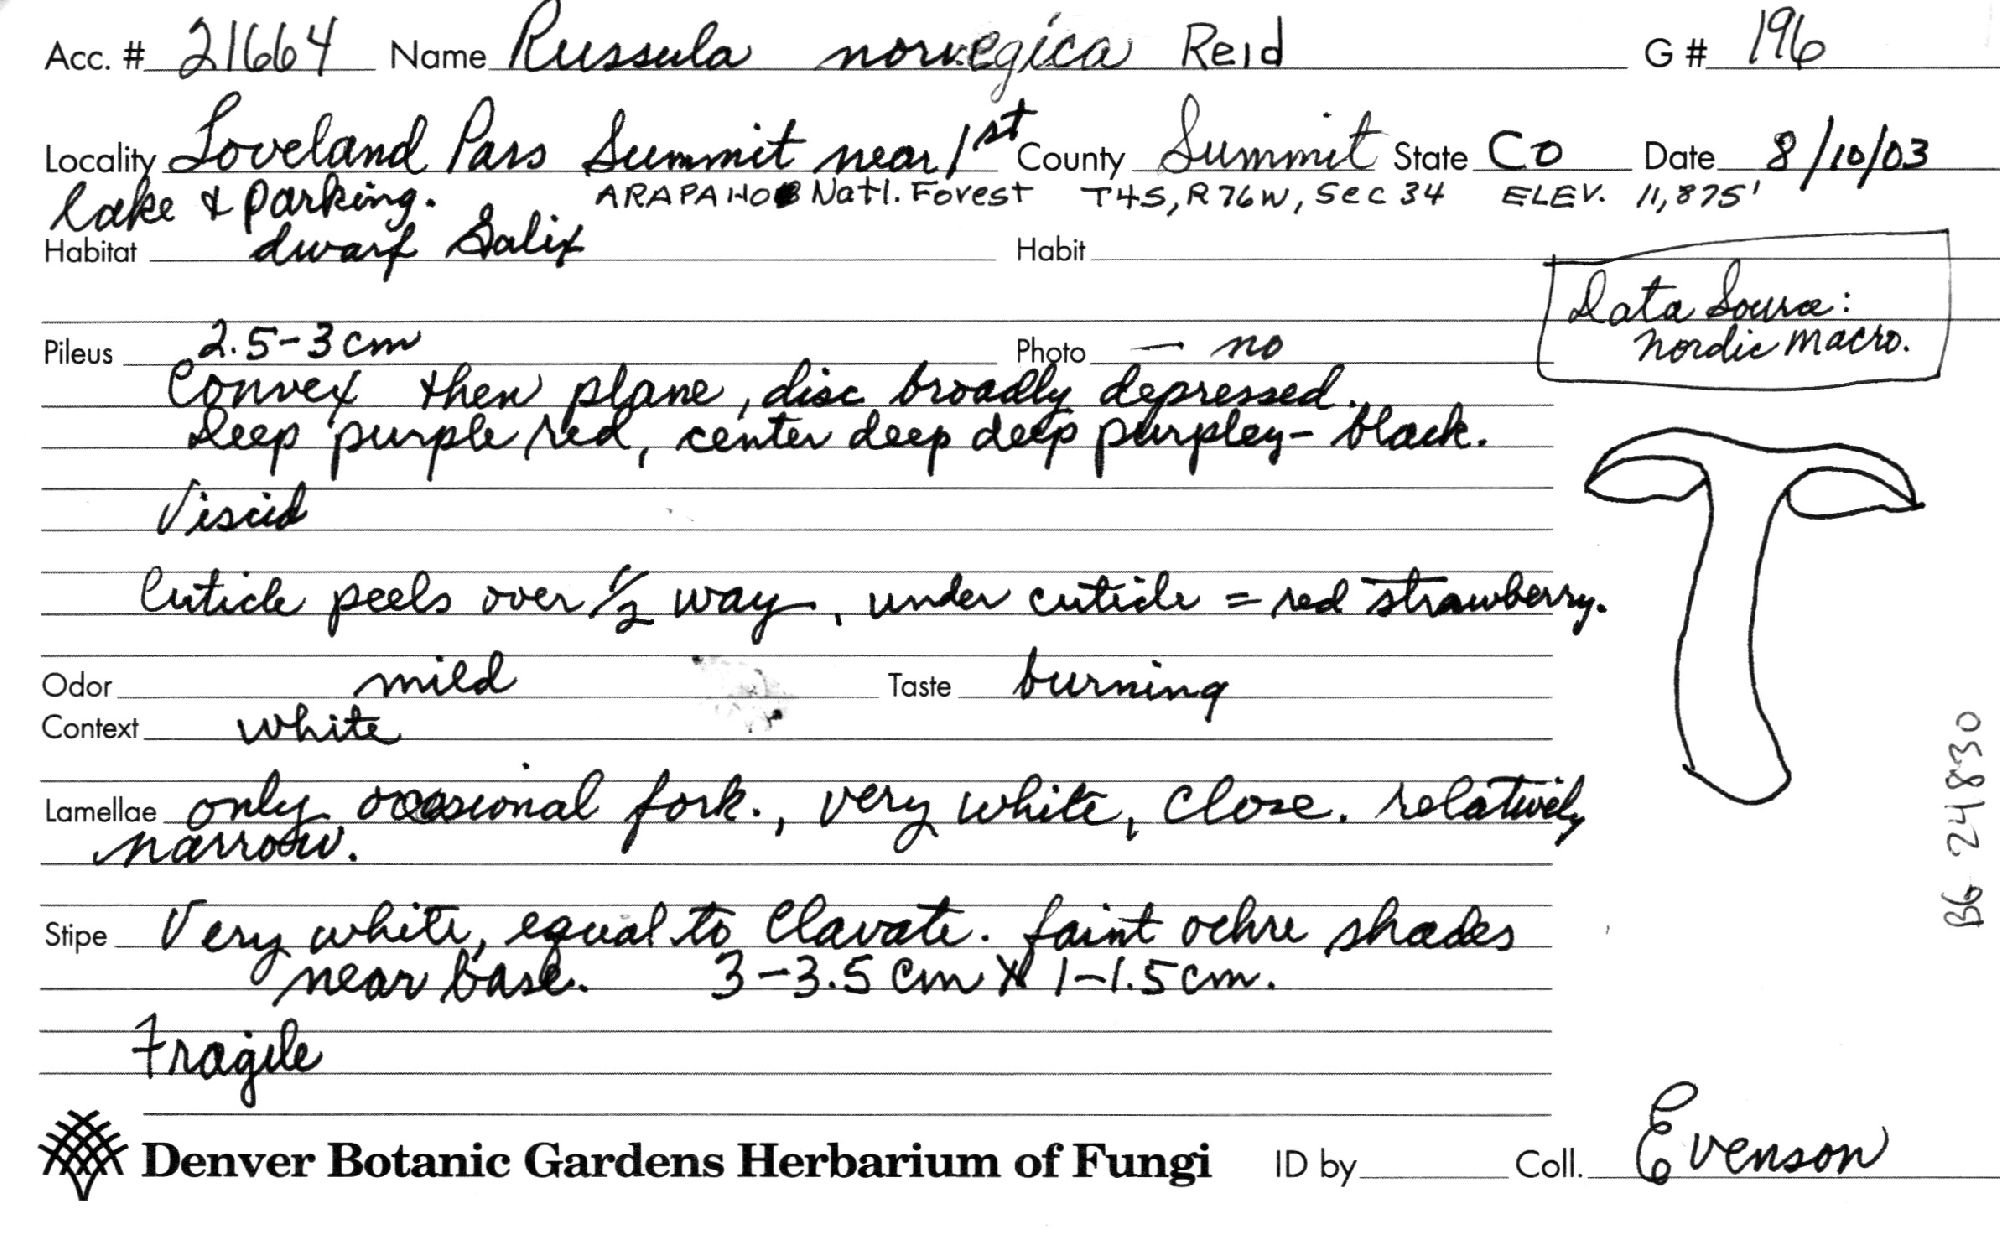 Acc. # 21664 Name Russula norvegica Reid G # 196
Locality Loveland Pass Summit near 1st County Summit State CO Date 8/10/03
lake & parking. ARAPAHOE Natl. Forest T4S, R76W, Sec 34 ELEV. 11,875'
Habitat dwarf Salix Habit
Data Source:
Nordic Macro.
Pileus 2.5-3 cm Photo — no
Convex then plane, disc broadly depressed.
Deep purple red, center deep deep purpley-black.
Viscid
Cuticle peels over 1/2 way, under cuticle = red strawberry.
Odor mild Taste burning
Context white
Lamellae only occasional fork., very white, close. relatively
narrow.
Stipe Very white, equal to clavate. faint ochre shades
near base. 3-3.5 cm X 1-1.5 cm.
Fragile
BG 24830
Denver Botanic Gardens Herbarium of Fungi ID by Coll. Evenson